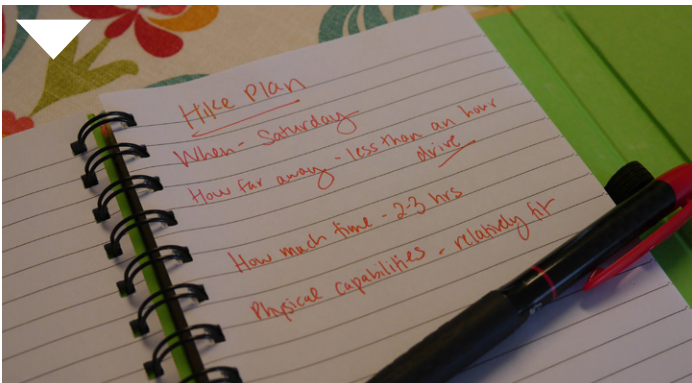 Hike Plan
When - Saturday
How far away - less than an hour
drive
How much time - 2-3 hrs
Physical capabilities - relatively fit